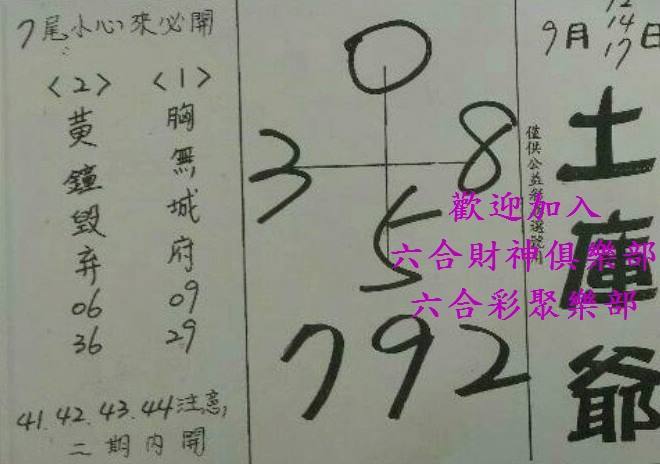 9月12 14 17日
土庫爺
僅供公益彩
0
3 8
5
792
7尾小心來必開
<1>
胸無城府09 29
<2>
黃鐘毀弃06 36
41.42.43.44注意,
二期內開
歡迎加入
六合財神俱樂部
六合彩聚樂部